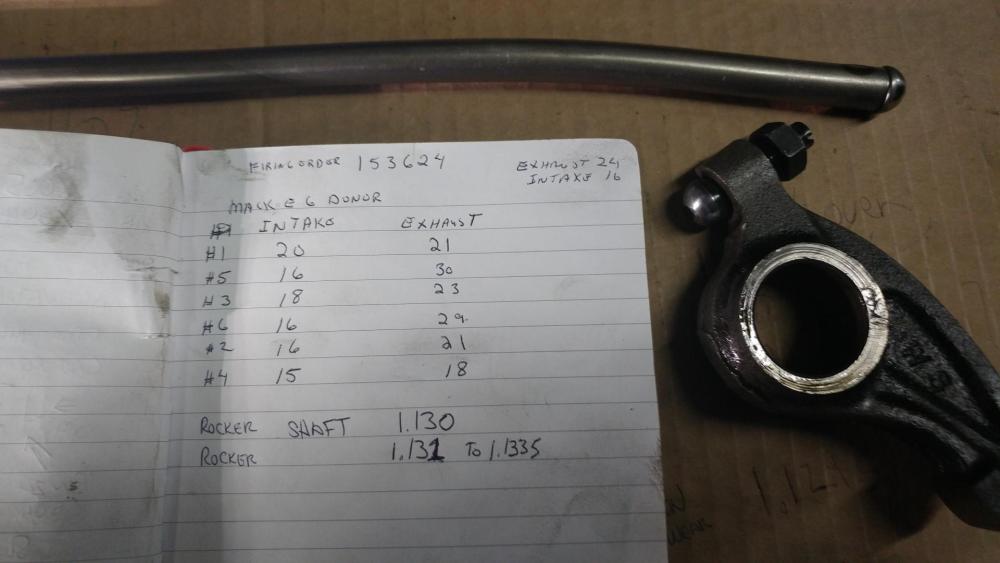 FIRING ORDER 153624
EXHAUST 24
INTAKE 16
MACK E6 DONOR
INTAKE EXHAUST
#1 20 21
#5 16 30
#3 18 23
#6 16 29
#2 16 21
#4 15 18
ROCKER SHAFT 1.130
ROCKER 1.131 TO 1.1335
over
WEAR